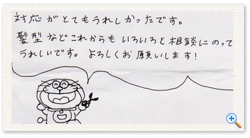 対応がとてもうれしかったです。
髪型などこれからもいろいろと相談にのって
うれしいです。よろしくお願いします！